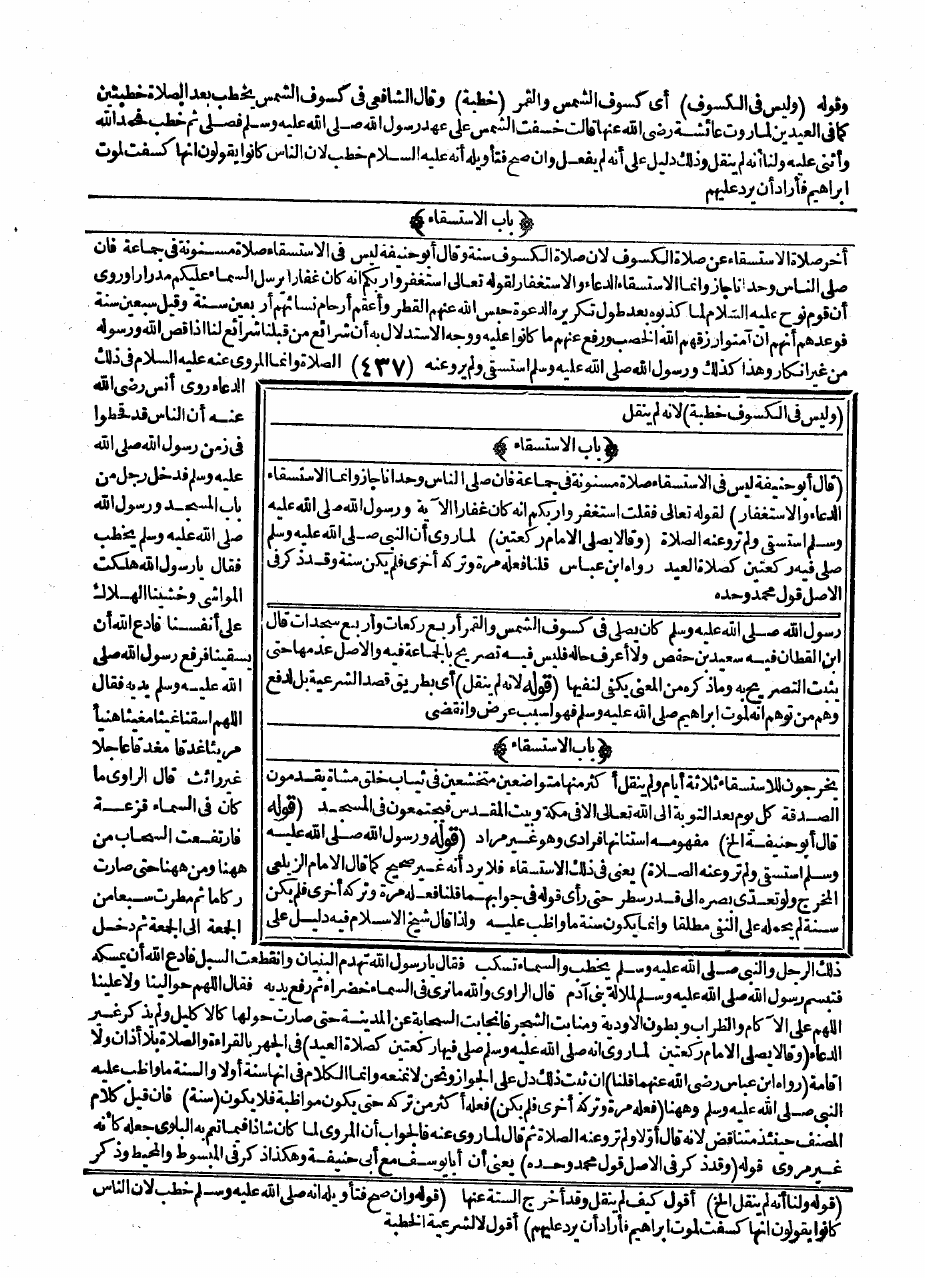 وقوله (وليس فى الكسوف) أى كسوف الشمس والقمر (خطبة) وقال الشافعى فى كسوف الشمس يخطب بعد الصلاة خطبتين
كما فى العيدين لما روت عائشة رضى الله عنها قالت خسفت الشمس على عهد رسول الله صلى الله عليه وسلم فصلى ثم خطب فحمد الله
وأثنى عليه ولنا أنه لم ينقل وذلك دليل على أنه لم يفعل وان صح فتأويله أنه عليه السلام خطب لان الناس كانوا يقولون انها كسفت لموت
ابراهيم فأراد أن يرد عليهم
﴿ باب الاستسقاء ﴾
أخر صلاة الاستسقاء عن صلاة الكسوف لان صلاة الكسوف سنة وقال أبو حنيفة ليس فى الاستسقاء صلاة مسنونة فى جماعة فان
صلى الناس وحدانا جاز وانما الاستسقاء الدعاء والاستغفار لقوله تعالى استغفروا ربكم انه كان غفارا يرسل السماء عليكم مدرارا وروى
أن قوم نوح عليه السلام لما كذبوه بعد طول تكريره الدعوة حبس الله عنهم القطر وأعقم أرحام نسائهم أربعين سنة وقيل سبعين سنة
فوعدهم أنهم ان آمنوا رزقهم الله الخصب ورفع عنهم ما كانوا عليه ووجه الاستدلال به أن شرائع من قبلنا شرائع لنا اذا قص الله ورسوله
من غير انكار وهذا كذلك ورسول الله صلى الله عليه وسلم استسقى ولم يرو عنه (٤٣٧) الصلاة وانما المروى عنه عليه السلام فى ذلك
الدعاء روى أنس رضى الله
عنه أن الناس قد قحطوا
فى زمن رسول الله صلى الله
عليه وسلم فدخل رجل من
باب المسجد ورسول الله
صلى الله عليه وسلم يخطب
فقال يا رسول الله هلكت
المواشى وخشينا الهلاك
على أنفسنا فادع الله أن
يسقينا فرفع رسول الله صلى
الله عليه وسلم يديه فقال
اللهم اسقنا غيثا مغيثا هنيأ
مريئا غدقا مغدقا عاجلا
غير رائث قال الراوى ما
كان فى السماء قزعة
فارتفعت السحاب من
ههنا ومن ههنا حتى صارت
ركاما ثم مطرت سبعا من
الجمعة الى الجمعة ثم دخل
(وليس فى الكسوف خطبة) لانه لم ينقل
﴿ باب الاستسقاء ﴾
(قال أبو حنيفة ليس فى الاستسقاء صلاة مسنونة فى جماعة فان صلى الناس وحدانا جاز وانما الاستسقاء
الدعاء والاستغفار) لقوله تعالى فقلت استغفروا ربكم انه كان غفارا الآية ورسول الله صلى الله عليه
وسلم استسقى ولم ترو عنه الصلاة (وقالا يصلى الامام ركعتين) لما روى أن النبى صلى الله عليه وسلم
صلى فيه ركعتين كصلاة العيد رواه ابن عباس قلنا فعله مرة وتركه أخرى فلم يكن سنة وقد ذكر فى
الاصل قول محمد وحده
رسول الله صلى الله عليه وسلم كان يصلى فى كسوف الشمس والقمر أربع ركعات وأربع سجدات قال
ابن القطان فيه سعيد بن حفص ولا أعرف حاله فليس فيه تصريح بالجماعة فيه والاصل عدمها حتى
يثبت التصريح به وما ذكره من المعنى يكفى لنفيها (قوله لانه لم ينقل) أى بطريق قصد الشرعية بل لدفع
وهم من توهم انه لموت ابراهيم صلى الله عليه وسلم فهو لسبب عرض وانقضى
﴿ باب الاستسقاء ﴾
يخرجون للاستسقاء ثلاثة أيام ولم ينقل أكثر منها متواضعين متخشعين فى ثياب خلق مشاة يقدمون
الصدقة كل يوم بعد التوبة الى الله تعالى الا فى مكة وبيت المقدس فيجتمعون فى المسجد (قوله
قال أبو حنيفة الخ) مفهومه استنانها فرادى وهو غير مراد (قوله ورسول الله صلى الله عليه
وسلم استسقى ولم ترو عنه الصلاة) يعنى فى ذلك الاستسقاء فلا يرد أنه غير صحيح كما قال الامام الزيلعى
المخرج ولو تعدى بصره الى قدر سطر حتى رأى قوله فى جوابهما قلنا فعله مرة وتركه أخرى فلم يكن
سنة لم يحمله على النفى مطلقا وانما يكون سنة ما واظب عليه ولذا قال شيخ الاسلام فيه دليل على
ذلك الرجل والنبى صلى الله عليه وسلم يخطب والسماء تسكب فقال يا رسول الله تهدم البنيان وانقطعت السبل فادع الله أن يمسكه
فتبسم رسول الله صلى الله عليه وسلم لملالة بنى آدم قال الراوى والله ما نرى فى السماء خضراء ثم رفع يديه فقال اللهم حوالينا ولا علينا
اللهم على الآكام والظراب وبطون الاودية ومنابت الشجر فانجابت السحابة عن المدينة حتى صارت حولها كالاكليل ولم يذكر غير
الدعاء (وقالا يصلى الامام ركعتين لما روى انه صلى الله عليه وسلم صلى فيها ركعتين كصلاة العيد) فى الجهر بالقراءة والصلاة بلا أذان ولا
اقامة (رواه ابن عباس رضى الله عنهما قلنا) ان ثبت ذلك دل على الجواز ونحن لا نمنعه وانما الكلام فى انها سنة أولا والسنة ما واظب عليه
النبى صلى الله عليه وسلم وههنا (فعله مرة وتركه أخرى فلم يكن) فعله أكثر من تركه حتى يكون مواظبة فلا يكون (سنة) فان قيل كلام
المصنف حينئذ متناقض لانه قال أولا ولم ترو عنه الصلاة ثم قال لما روى عنه فالجواب أن المروى لما كان شاذا فيما تعم به البلوى جعله كأنه
غير مروى قوله (وقد ذكر فى الاصل قول محمد وحده) يعنى أن أبا يوسف مع أبى حنيفة وهكذا ذكر فى المبسوط والمحيط وذكر
(قوله ولنا أنه لم ينقل الخ) أقول كيف لم ينقل وقد أخرج الستة عنها (قوله وان صح فتأويله انه صلى الله عليه وسلم خطب لان الناس
كانوا يقولون انها كسفت لموت ابراهيم فأراد أن يرد عليهم) أقول لا لشرعية الخطبة